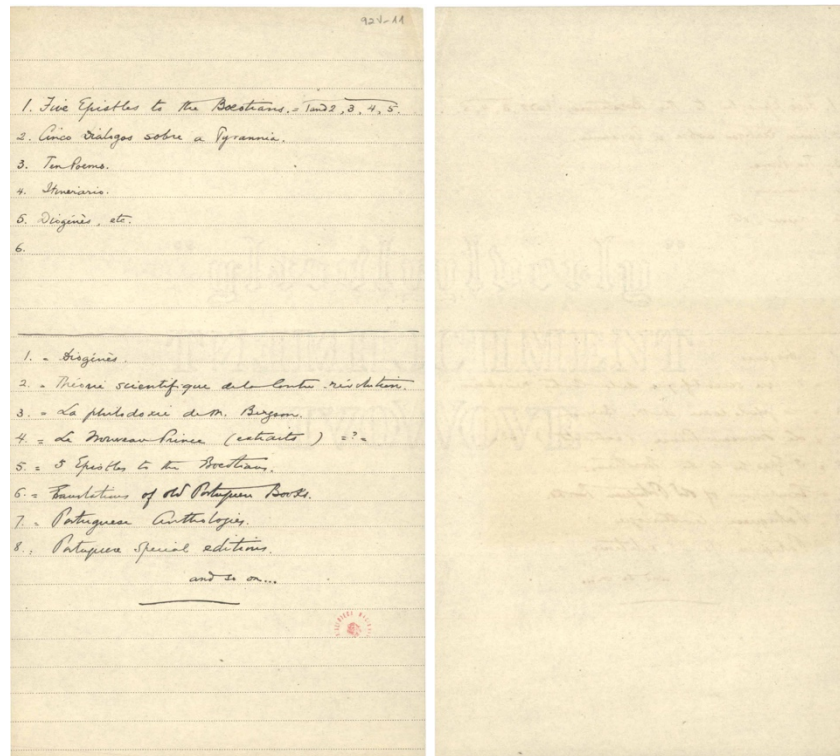 92V-11
1. Five Epistles to the Bœotians. = 1 and 2, 3, 4, 5.
2. Cinco Dialogos sobre a Tyrannia.
3. Ten Poems.
4. Itinerario.
5. Diogénès, etc.
6.
1. = Diogénès.
2. = Théorie scientifique de la Contre-révolution.
3. = La philodoxie de M. Bergson.
4. = Le Nouveau Prince (extraits) = ? =
5. = 5 Epistles to the Bœotians.
6. = Translations of old Portuguese Books.
7. = Portuguese Anthologies.
8. = Portuguese special editions.
and so on...